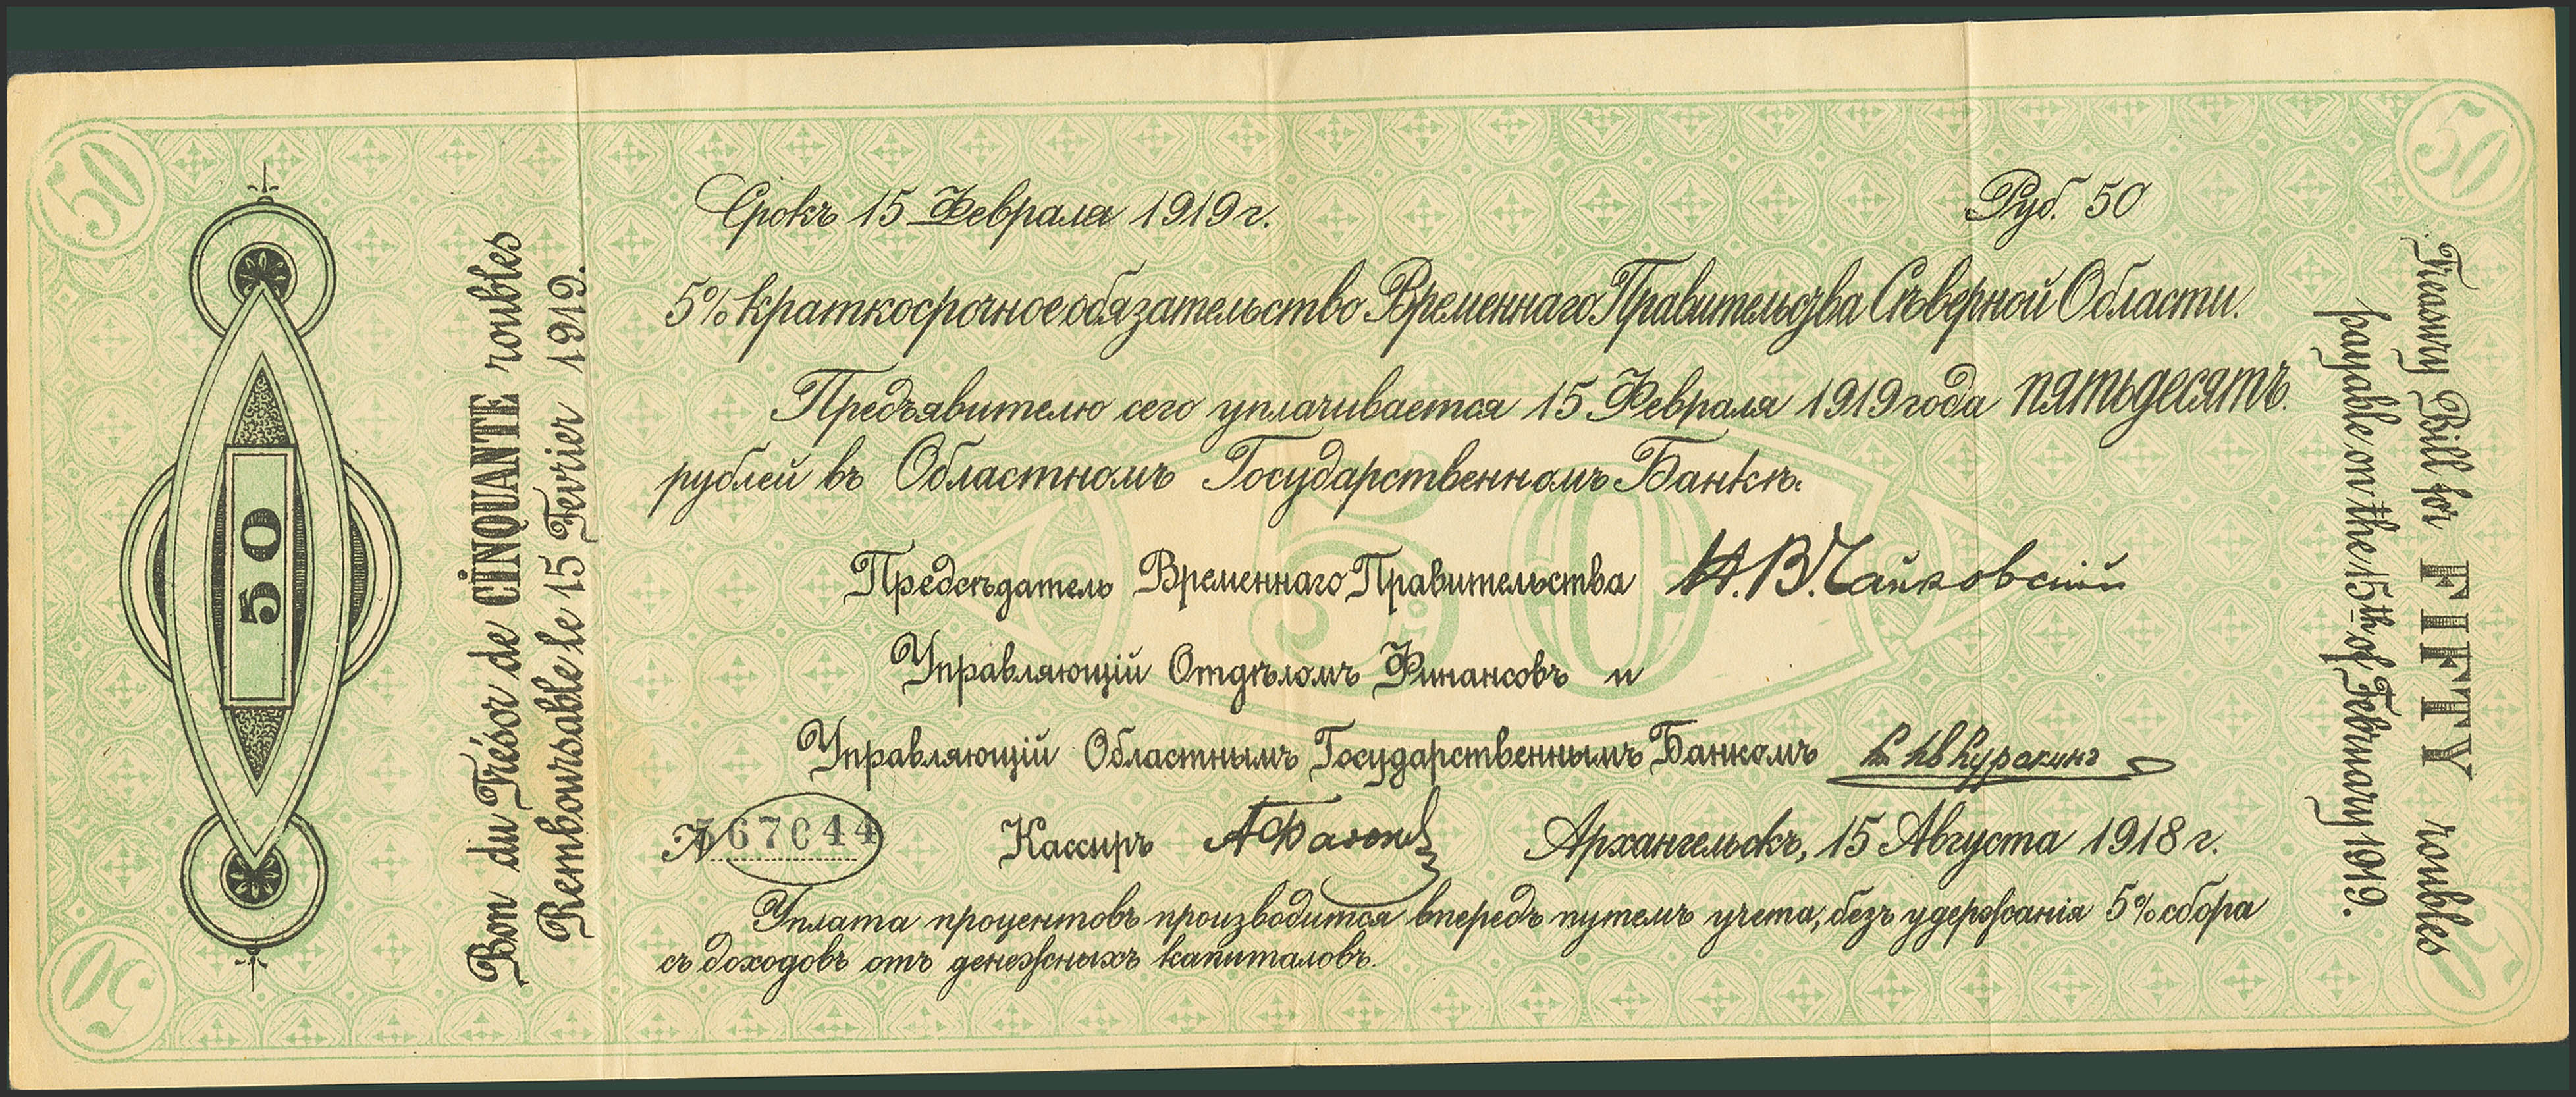 50
50
Срокъ 15 Февраля 1919 г.
Руб. 50
5% краткосрочное обязательство Временнаго Правительства Сѣверной Области.
Предъявителю сего уплачивается 15 Февраля 1919 года пятьдесятъ
рублей въ Областномъ Государственномъ Банкѣ.
Предсѣдатель Временнаго Правительства Н. В. Чайковскій
Управляющій Отдѣломъ Финансовъ и
Управляющій Областнымъ Государственнымъ Банкомъ
№ 567044
Кассиръ
Архангельскъ, 15 Августа 1918 г.
Уплата процентовъ производится впередъ путемъ учета, безъ удержанія 5% сбора
съ доходовъ отъ денежныхъ капиталовъ.
50
Bon du Trésor de CINQUANTE roubles
Remboursable le 15 Fevrier 1919.
Treasury Bill for FIFTY roubles
payable on the 15th of February 1919.
50
50
50